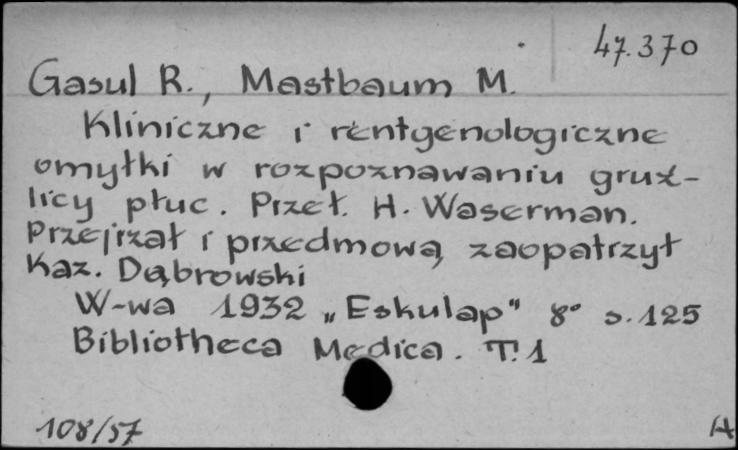 47.370
Gasul R., Mastbaum M.
Kliniczne i rentgenologiczne
omyłki w rozpoznawaniu gruź-
licy płuc. Przeł. H. Waserman.
Przejrzał i przedmową zaopatrzył
Kaz. Dąbrowski
W-wa 1932 „Eskulap" 8° s. 125
Bibliotheca Medica. T. 1
108/57 H